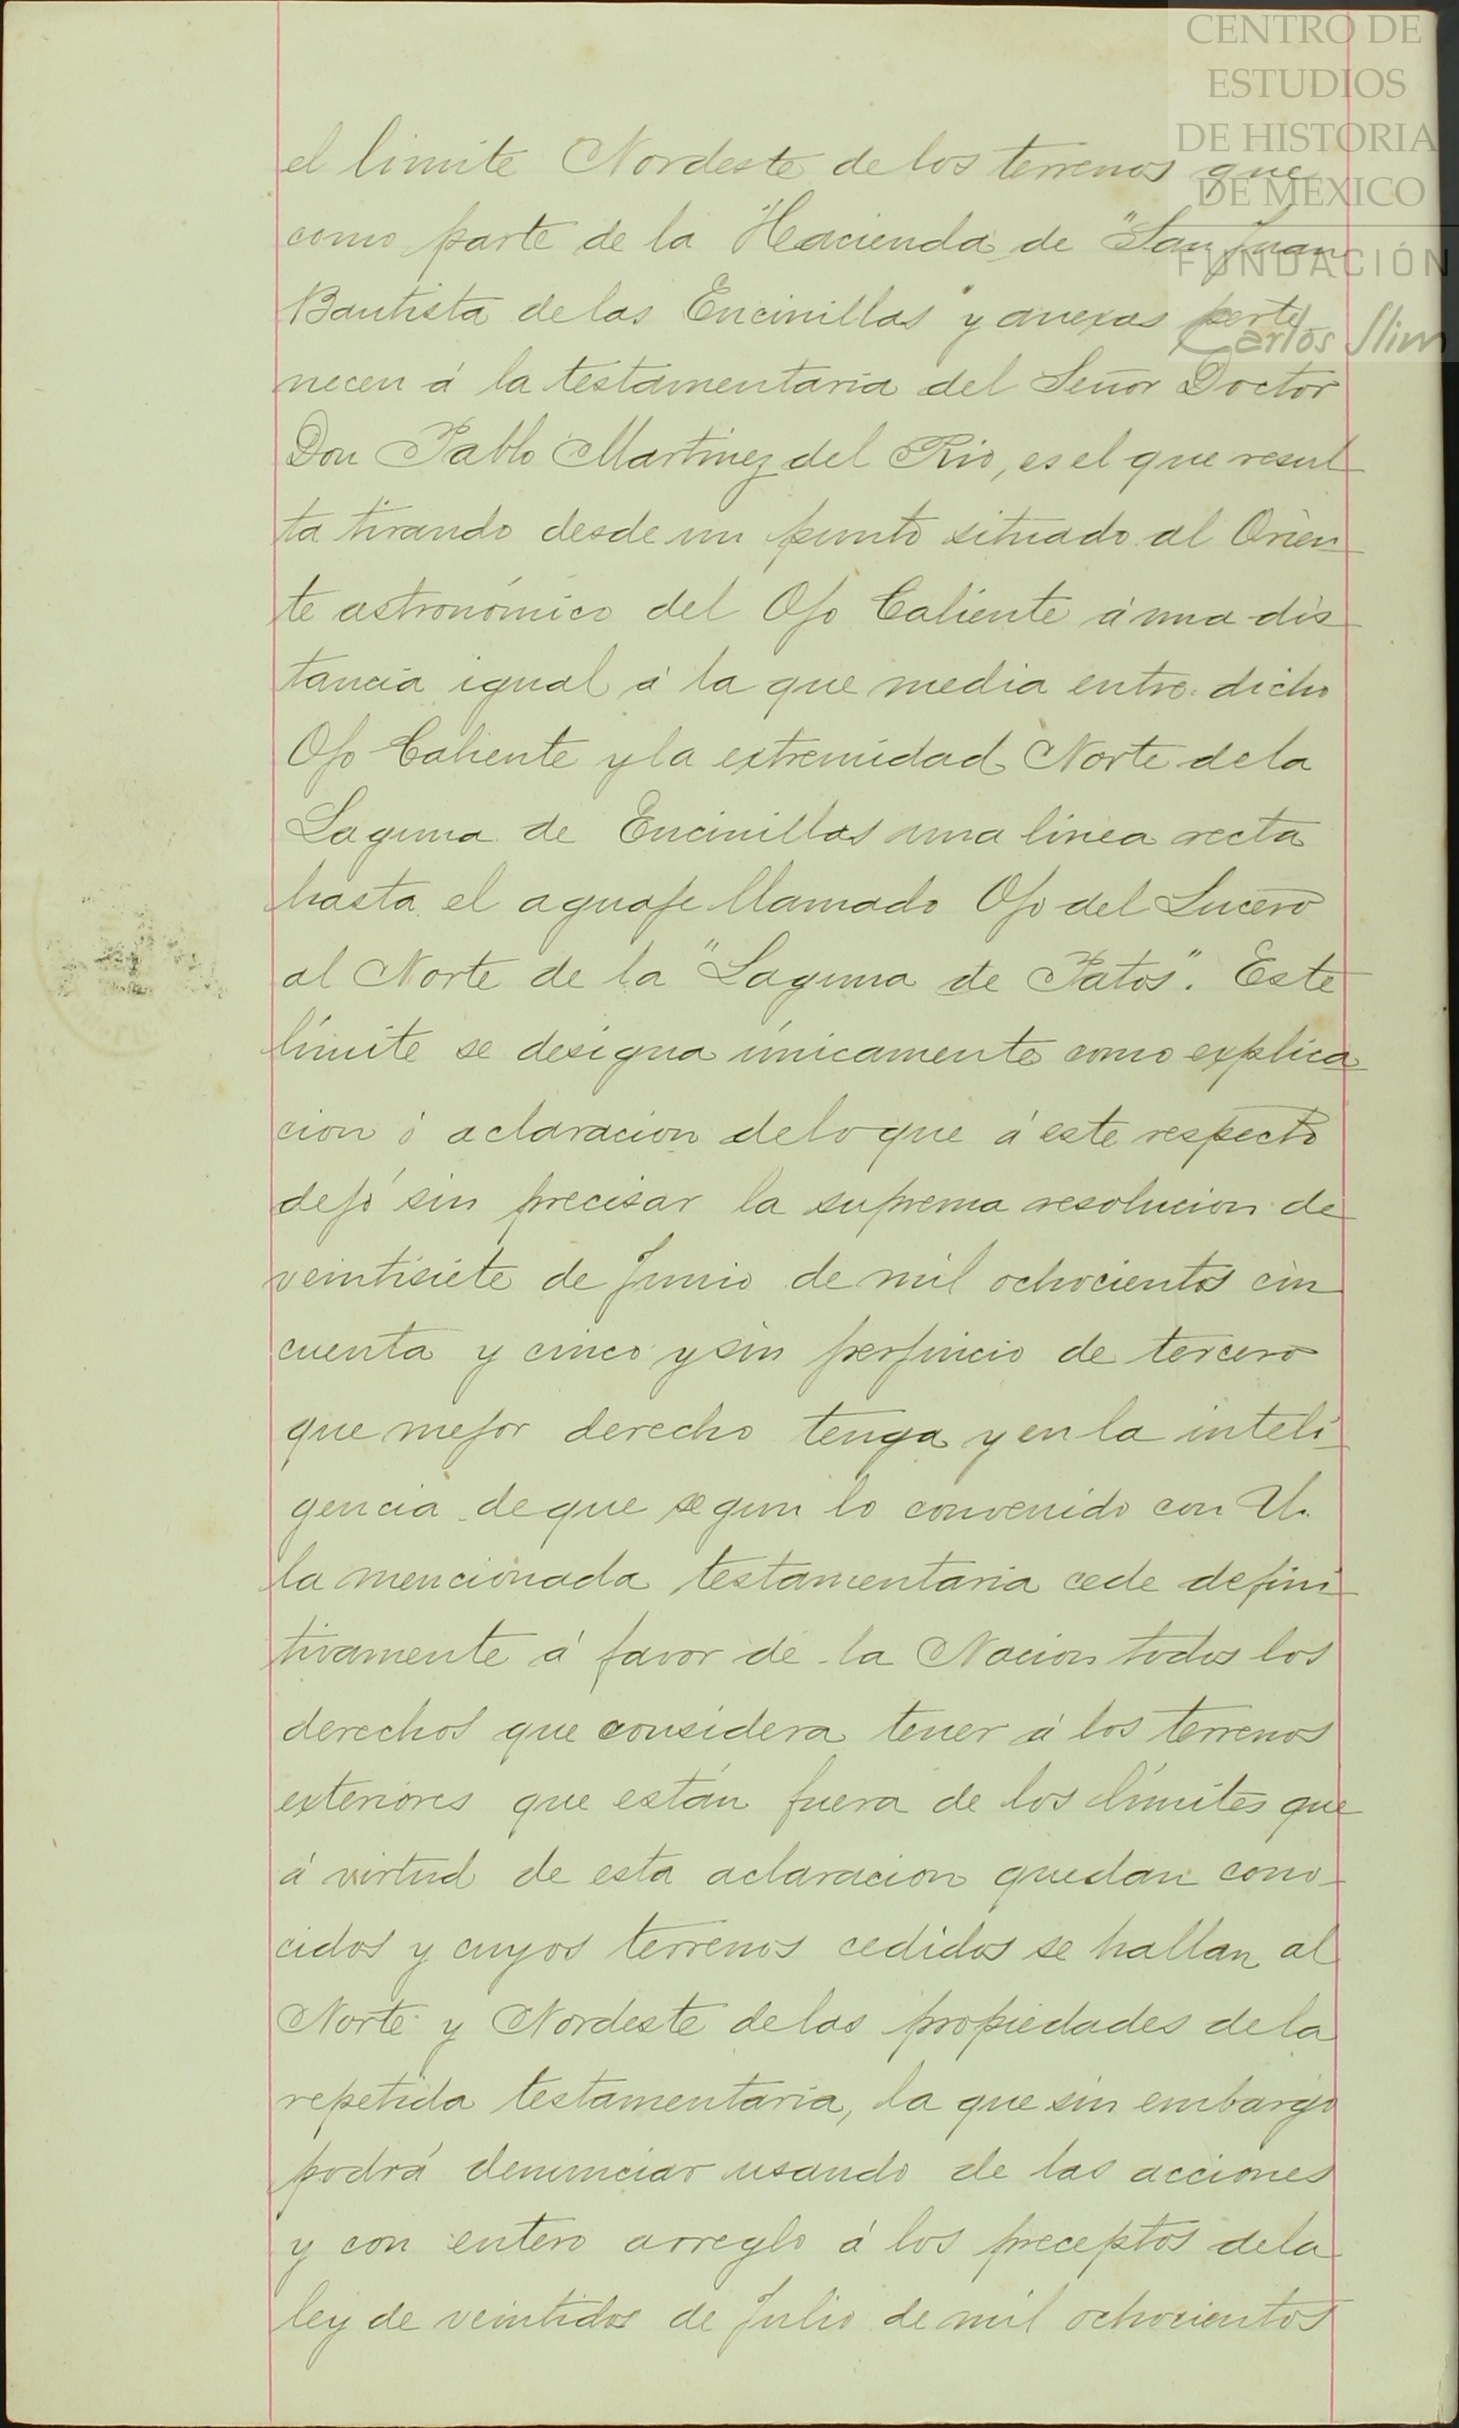 CENTRO DE
ESTUDIOS
DE HISTORIA
DE MÉXICO
FUNDACIÓN
Carlos Slim
el limite Nordeste de los terrenos que
como parte de la Hacienda de "San Juan
Bautista de las Encinillas" y anexas perte
necen á la testamentaria del Señor Doctor
Don Pablo Martinez del Rio, es el que resul
ta tirando desde un punto situado al Orien
te astronómico del Ojo Caliente á una dis
tancia igual á la que media entre dicho
Ojo Caliente y la extremidad Norte de la
Laguna de Encinillas una linea recta
hasta el aguaje llamado Ojo del Lucero
al Norte de la "Laguna de Patos". Este
límite se designa únicamente como explica
cion ó aclaracion de lo que á este respecto
dejó sin precisar la suprema resolucion de
veintisiete de Junio de mil ochocientos cin
cuenta y cinco y sin perjuicio de tercero
que mejor derecho tenga y en la inteli
gencia de que segun lo convenido con U.
la mencionada testamentaria cede defini
tivamente á favor de la Nacion todos los
derechos que considera tener á los terrenos
exteriores que están fuera de los límites que
á virtud de esta aclaracion quedan cono-
cidos y cuyos terrenos cedidos se hallan al
Norte y Nordeste de las propiedades de la
repetida testamentaria, la que sin embargo
podrá denunciar usando de las acciones
y con entero arreglo á los preceptos de la
ley de veintidos de Julio de mil ochocientos